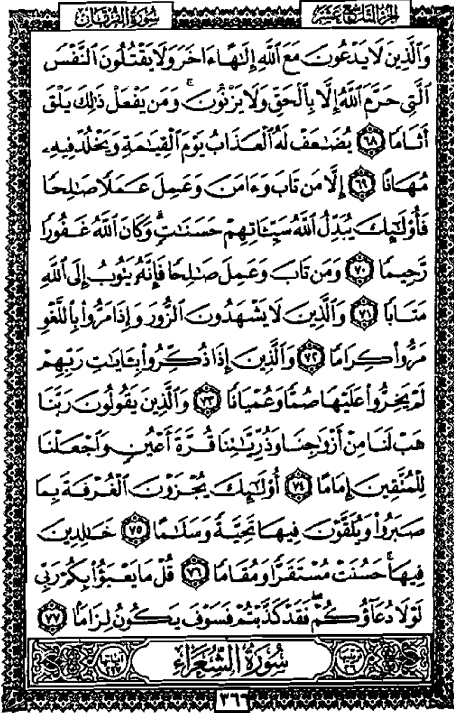 سُورَةُ الفُرْقَانِ
الجُزْءُ التَّاسِعَ عَشَرَ
وَٱلَّذِينَ لَا يَدْعُونَ مَعَ ٱللَّهِ إِلَٰهًا ءَاخَرَ وَلَا يَقْتُلُونَ ٱلنَّفْسَ
ٱلَّتِي حَرَّمَ ٱللَّهُ إِلَّا بِٱلْحَقِّ وَلَا يَزْنُونَۚ وَمَن يَفْعَلْ ذَٰلِكَ يَلْقَ
أَثَامًا ٦٨ يُضَٰعَفْ لَهُ ٱلْعَذَابُ يَوْمَ ٱلْقِيَٰمَةِ وَيَخْلُدْ فِيهِۦ
مُهَانًا ٦٩ إِلَّا مَن تَابَ وَءَامَنَ وَعَمِلَ عَمَلًا صَٰلِحًا
فَأُو۟لَٰٓئِكَ يُبَدِّلُ ٱللَّهُ سَيِّـَٔاتِهِمْ حَسَنَٰتٍۗ وَكَانَ ٱللَّهُ غَفُورًا
رَّحِيمًا ٧٠ وَمَن تَابَ وَعَمِلَ صَٰلِحًا فَإِنَّهُۥ يَتُوبُ إِلَى ٱللَّهِ
مَتَابًا ٧١ وَٱلَّذِينَ لَا يَشْهَدُونَ ٱلزُّورَ وَإِذَا مَرُّوا۟ بِٱللَّغْوِ
مَرُّوا۟ كِرَامًا ٧٢ وَٱلَّذِينَ إِذَا ذُكِّرُوا۟ بِـَٔايَٰتِ رَبِّهِمْ
لَمْ يَخِرُّوا۟ عَلَيْهَا صُمًّا وَعُمْيَانًا ٧٣ وَٱلَّذِينَ يَقُولُونَ رَبَّنَا
هَبْ لَنَا مِنْ أَزْوَٰجِنَا وَذُرِّيَّٰتِنَا قُرَّةَ أَعْيُنٍ وَٱجْعَلْنَا
لِلْمُتَّقِينَ إِمَامًا ٧٤ أُو۟لَٰٓئِكَ يُجْزَوْنَ ٱلْغُرْفَةَ بِمَا
صَبَرُوا۟ وَيُلَقَّوْنَ فِيهَا تَحِيَّةً وَسَلَٰمًا ٧٥ خَٰلِدِينَ
فِيهَاۚ حَسُنَتْ مُسْتَقَرًّا وَمُقَامًا ٧٦ قُلْ مَا يَعْبَؤُا۟ بِكُمْ رَبِّي
لَوْلَا دُعَآؤُكُمْۖ فَقَدْ كَذَّبْتُمْ فَسَوْفَ يَكُونُ لِزَامًۢا ٧٧
سُورَةُ الشُّعَرَاءِ
٣٦٦